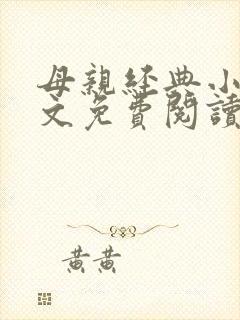 母親經典小
文免費閱讀
黃黃